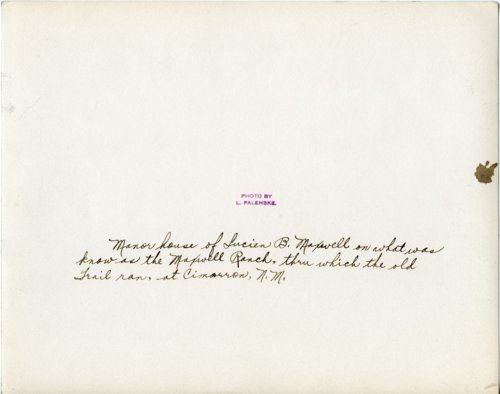 PHOTO BY
L. PALENSKE.
Manor house of Lucien B. Maxwell on what was
know as the Maxwell Ranch, thru which the old
Trail ran, at Cimarron, N.M.